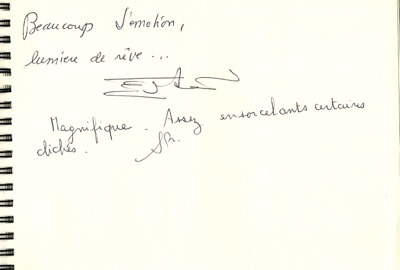 Beaucoup d'émotion,
lumière de rêve...
Magnifique. Assez ensorcelants certains
clichés.